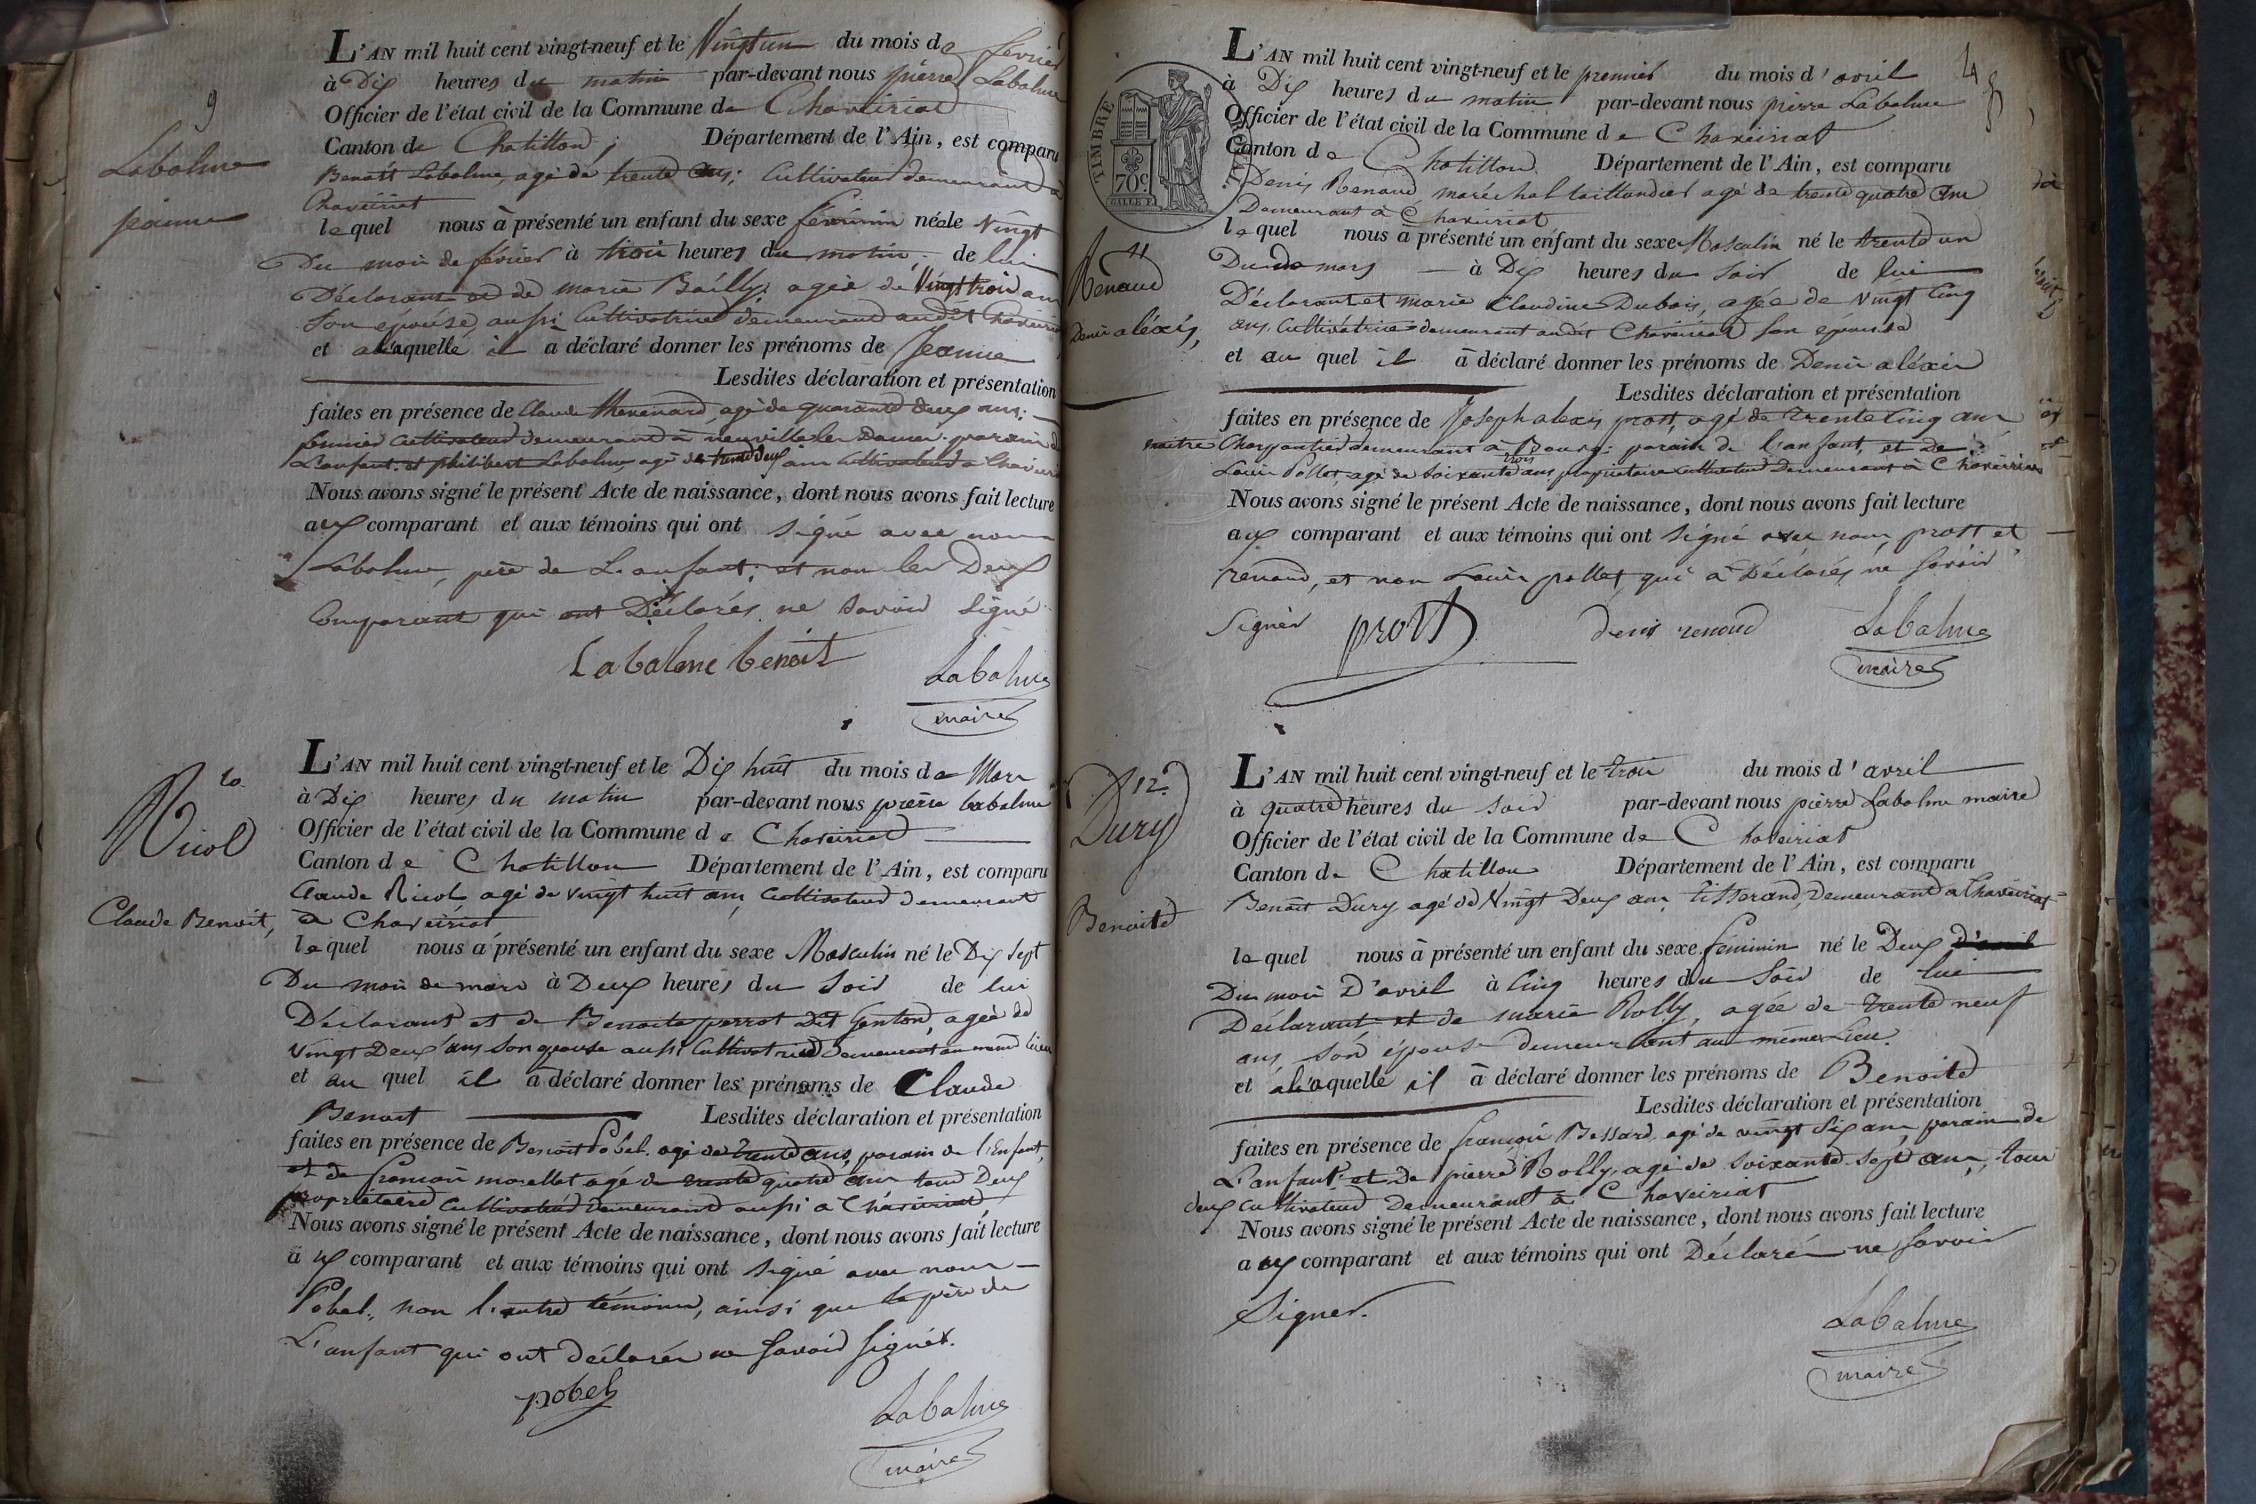 9
Labalme
jeanne
L'AN mil huit cent vingt-neuf et le Vingt un du mois de fevrier
à Dix heures du matin par-devant nous pierre Labalme
Officier de l'état civil de la Commune de Chaveiriat
Canton de Chatillon, Département de l'Ain, est comparu
Benoit Labalme, agé de trente ans; Cultivateur demeurant à
Chaveiriat
lequel nous à présenté un enfant du sexe feminin née le Vingt
Du mois de fevrier à trois heures du matin, de lui
Déclarant et de marie Bailly, agée de Vingt trois ans
Son épouse, aussi Cultivatrice demeurant audit Chaveiriat
et alaquelle il a déclaré donner les prénoms de Jeanne
Lesdites déclaration et présentation
faites en présence de Claude thevenard, agé de quarante deux ans;
fermier Cultivateur demeurant à neuville les Dames parain de
L'enfant. et philibert Labalme agé de trente deux ans Cultivateur a Chaveiriat
Nous avons signé le présent Acte de naissance, dont nous avons fait lecture
aux comparant et aux témoins qui ont signé avec nous
Labalme, père de L'anfant; et non les Deux
Comparant qui ont Déclarés ne savoir signé
Labalme benoit
Labalme
maire
10.
Nicol
Claude Benoit,
L'AN mil huit cent vingt-neuf et le Dix huit du mois de Mars
à Dix heures du matin par-devant nous pierre labalme
Officier de l'état civil de la Commune de Chaveiriat
Canton de Chatillon Département de l'Ain, est comparu
Claude Nicol agé de vingt huit ans, Cultivateur demeurant
à Chaveiriat
lequel nous a présenté un enfant du sexe Masculin né le Dix sept
Du mois de mars à Deux heures du Soir de lui
Déclarant et de Benoite perrot Dit Genton, agée de
vingt Deux ans son epouse aussi Cultivatrice Demeurant au meme lieu
et au quel il a déclaré donner les prénoms de Claude
Benoit Lesdites déclaration et présentation
faites en présence de Benoit Pobel agé de trente ans, parain de l'Enfant,
et de françois morellet agé de trente quatre ans tous Deux
propriétaire Cultivateur demeurant aussi a Chaveiriat,
Nous avons signé le présent Acte de naissance, dont nous avons fait lecture
aux comparant et aux témoins qui ont signé avec nous
Pobel, non l'autre témoins, ainsi que le père de
L'anfant qui ont déclarés ne Savoir Signér.
pobel
Labalme
maire
4
TIMBRE ROYAL
70c
11
Renaud
Denis aléxis,
L'AN mil huit cent vingt-neuf et le premier du mois d'avril
à Dix heures du matin par-devant nous pierre Labalme
Officier de l'état civil de la Commune de Chaveiriat
Canton de Chatillon Département de l'Ain, est comparu
Denis Renaud maréchal taillandier agé de trente quatre ans
Demeurant à Chaveiriat
lequel nous à présenté un enfant du sexe Masculin né le trente un
Du de mars à Dix heures du Soir de lui
Déclarant et marie Claudine Dubois, agée de vingt Cinq
ans, Cultivatrice demeurant audit Chaveiriat Son épouse
et au quel il à déclaré donner les prénoms de Denis aléxis
Lesdites déclaration et présentation
faites en présence de Joseph alexis prost, agé de trente Cinq ans
maitre Charpantier demeurant à Bourg; parain de l'anfant, et de
Louis Pollet, agé de Soixante trois ans, propriétaire Cultivateur demeurant à Chaveiriat
Nous avons signé le présent Acte de naissance, dont nous avons fait lecture
aux comparant et aux témoins qui ont signé avec nous prost et
renaud, et non Louis pollet, qui à Déclarés ne Savoir
Signér
prost
denis renaud
Labalme
maire
12.
Dury
Benoite
L'AN mil huit cent vingt-neuf et le trois du mois d'avril
à quatre heures du soir par-devant nous pierre Labalme maire
Officier de l'état civil de la Commune de Chaveiriat
Canton de Chatillon Département de l'Ain, est comparu
Benoit Dury agé de Vingt Deux ans, tisserand, Demeurant a Chaveiriat
lequel nous à présenté un enfant du sexe feminin né le Deux d'avril
Du mois D'avril à Cinq heures du Soir de lui
Déclarant et de marie Rolly, agée de trente neuf
ans, Son épouse demeurant au même Lieu.
et à laquelle il à déclaré donner les prénoms de Benoite
Lesdites déclaration et présentation
faites en présence de françois Bessard, agé de vingt Six ans, parain de
L'anfant et De pierre Rolly, agé de Soixante Sept ans, tous
deux Cultivateur Demeurant à Chaveiriat
Nous avons signé le présent Acte de naissance, dont nous avons fait lecture
aux comparant et aux témoins qui ont Déclarés ne Savoir
Signer.
Labalme
maire